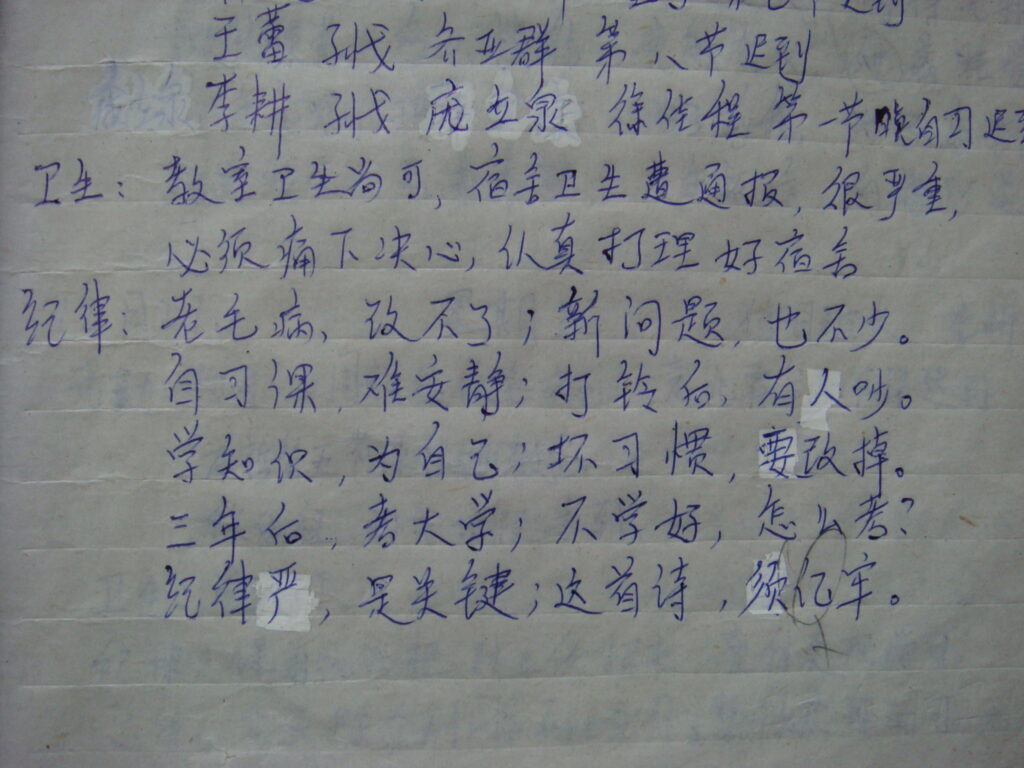 迟到
王蕾 孙戈 乔亚群 第八节迟到
李耕 孙戈 庞立泉 徐佳程 第一节晚自习迟到
卫生：教室卫生尚可，宿舍卫生遭通报，很严重，
必须痛下决心，认真打理好宿舍
纪律：老毛病，改不了；新问题，也不少。
自习课，难安静；打铃后，有人吵。
学知识，为自己；坏习惯，要改掉。
三年后，考大学；不学好，怎么考？
纪律严，是关键；这首诗，须亿牢。